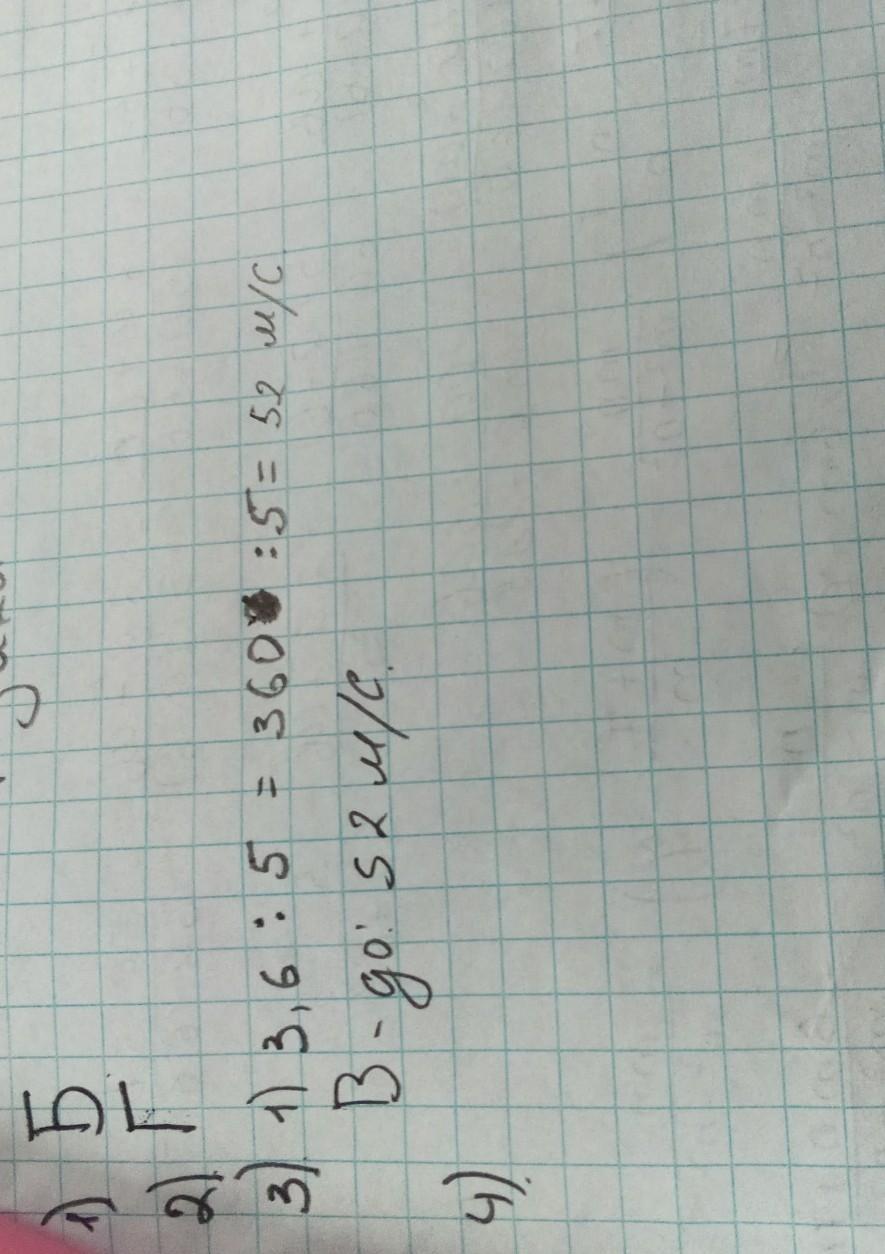 1) Б
2) Г
3) 1) 3,6 : 5 = 360 : 5 = 52 м/с
В - до: 52 м/с.
4).